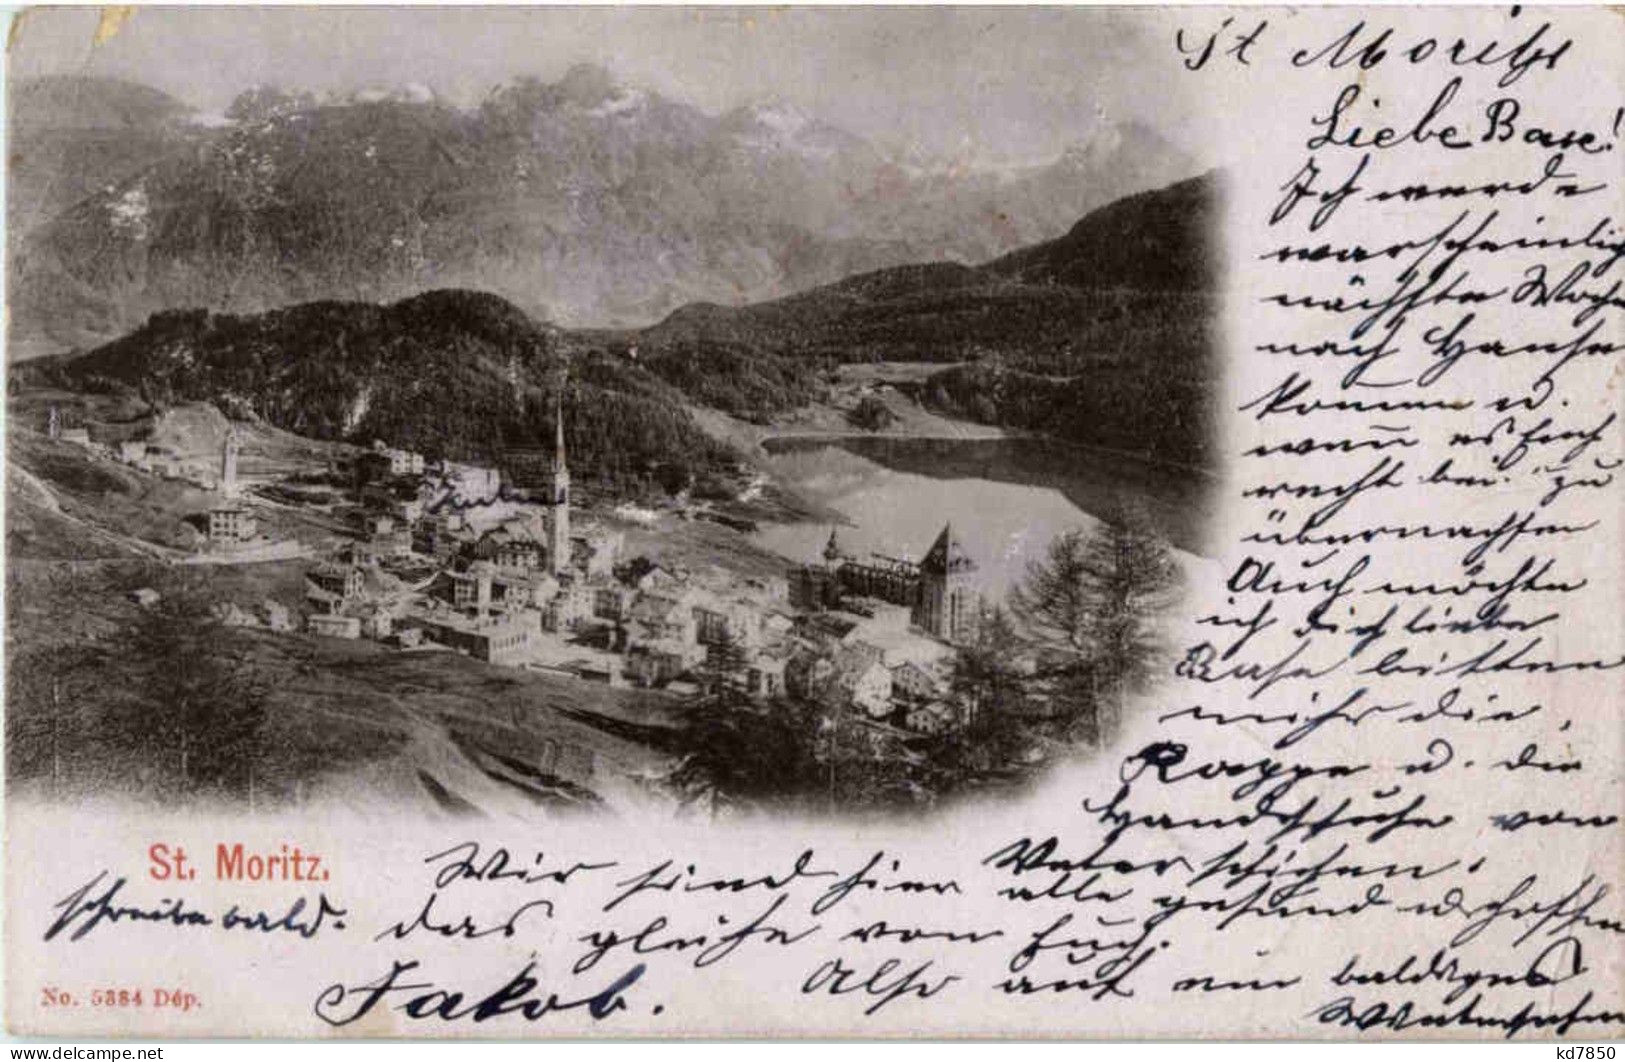 St Moritz
Liebe Base!
Ich werde
warscheinlich
nächste Woche
nach Hause
kommen u.
wenn es Euch
recht bei zu
übernachten
Auch möchte
ich dich liebe
Base bitten
mihr die
Kappe u. die
Handschuhe von
Vater schicken.
Wir sind hier alle gesund u hoffen
das gleiche von Euch.
Also auf ein baldiges
Wiedersehen
schreibe bald.
Jakob.
St. Moritz.
No. 5384 Dép.
kd7850